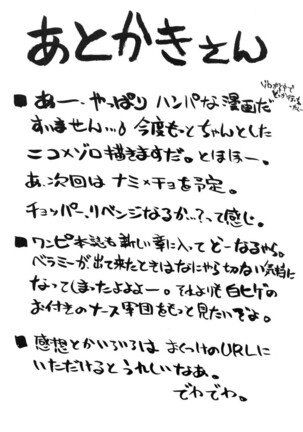 あとがきさん
■あー、やっぱり ハンパな漫画だ
すいません…。今度もっとちゃんとした
ニコ×ゾロ描きますだ。とほほー。
あ、次回は ナミ×チョを予定。
チョッパー、リベンジなるか…?って感じ。
■ワンピ本誌も新しい章に入って どーなるやら。
ベラミーが出て来たときはなにやら切ない気持に
なってしまったよよよー。それよりも白ヒゲの
お付きのナース軍団をもっと見たいでよ。
■感想とかいろいろは おくつけのURLに
いただけると うれしいなあ。
でわでわ。